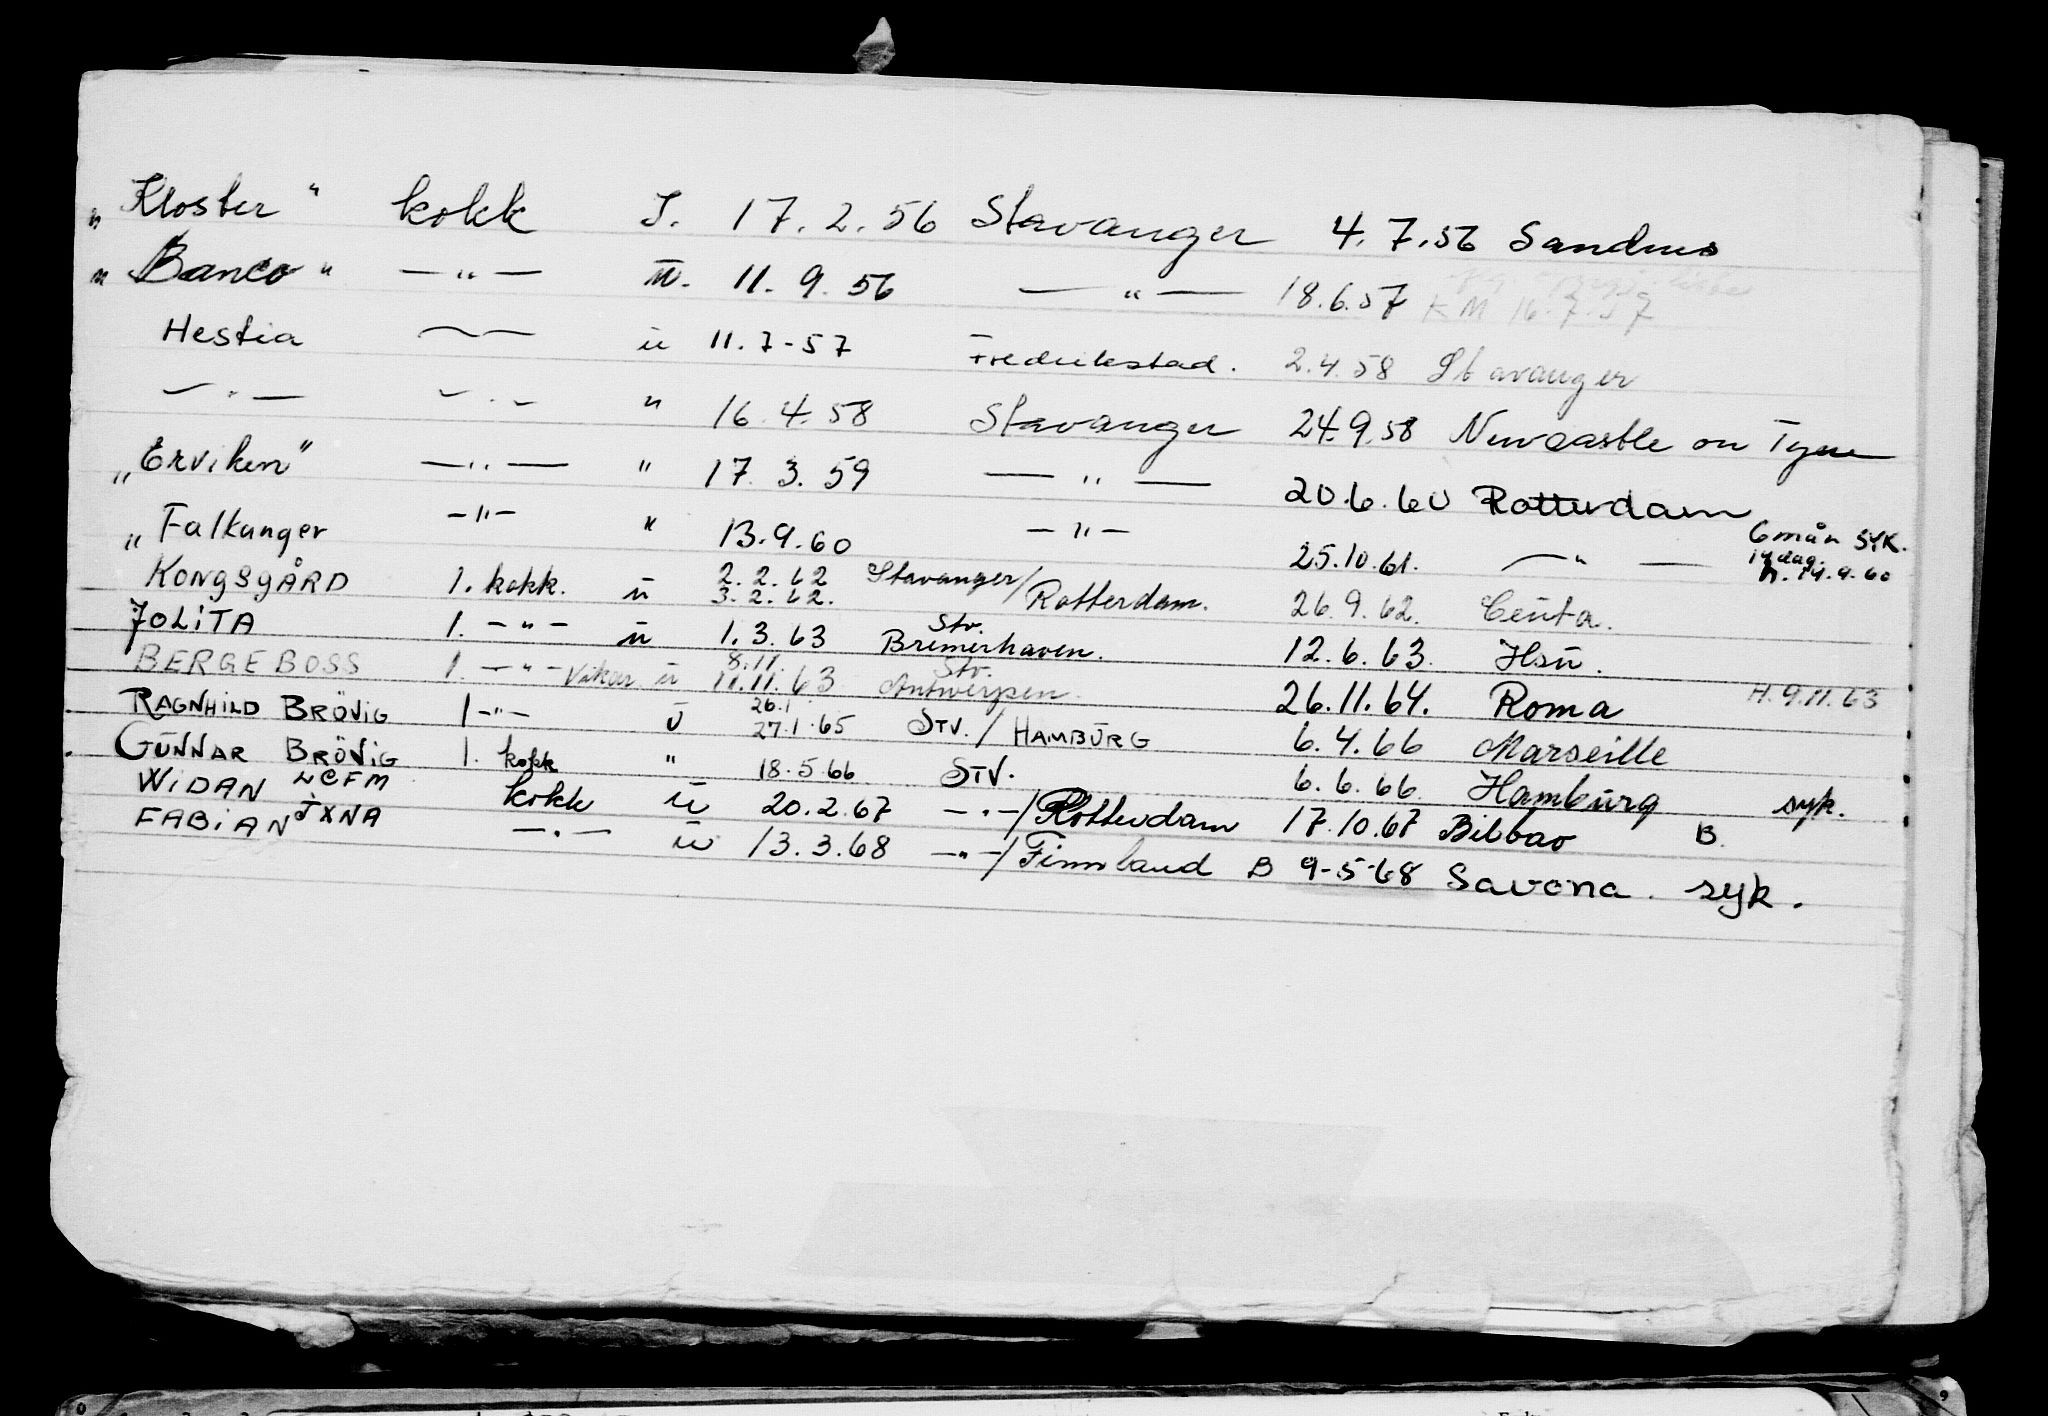 „ Kloster " kokk J. 17.2.56 Stavanger 4.7.56 Sandnes
„ Banco " — " — u. 11.9.56 — " — 18.6.57 KM 16.7.57
Hestia — — u 11.7-57 Fredrikstad. 2.4.58 Stavanger
— " — — " — " 16.4.58 Stavanger 24.9.58 Newcastle on Tyne
„ Erviken" — " — " 17.3.59 — " — 20.6.60 Rotterdam
„ Falkanger — " — " 13.9.60 — " — 25.10.61. — " — 6 mån SYK.
14 dag. h. 14.9.60
KONGSGÅRD 1. kokk. u 2.2.62 3.2.62. Stavanger/ Rotterdam. 26.9.62. Ceuta.
JOLITA 1. — " — u 1.3.63 Stv. Bremerhaven. 12.6.63. Hsu.
BERGEBOSS 1. — " — Vikar u 8.11. 11.11.63 Stv. Antwerpen. 26.11.64. Roma H.9.11.63
RAGNHILD BRÖVIG 1 — " — U 26.1 27.1.65 STV. / HAMBURG 6.4.66 Marseille
GUNNAR BRÖVIG 1. kokk " 18.5.66 STV. 6.6.66 Hamburg syk.
WIDAN LCFM kokk u 20.2.67 — " —/ Rotterdam 17.10.67 Bilbao B.
FABIAN JXNA — " — u 13.3.68 — " —/ Finnland B 9-5-68 Savona. syk.